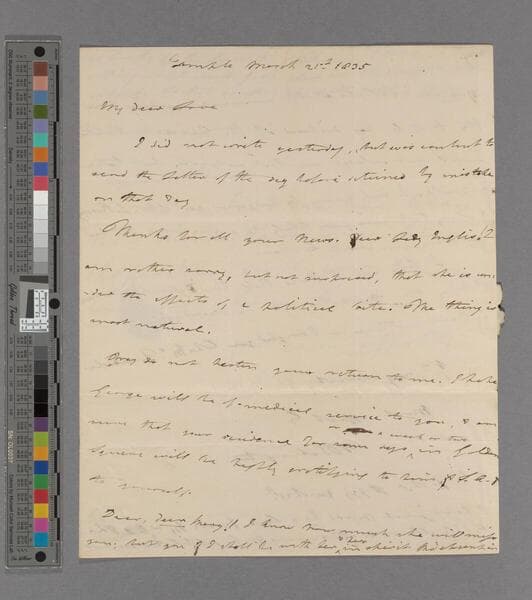 Temple March 21st 1835
My dear Love
I did not write yesterday, but was content to
send the letter of the day before returned by mistake
on that day
Thanks for all your News. Dear Lady Inglis! I
am rather sorry, but not surprised, that she is un-
der the effects of a political bite. The thing is
most natural.
Pray do not hasten your return to me. I hope
George will be of medical service to you, & am
sure that your residence for some days, or a week or two in Golden
Square will be highly gratifying to him &
to yourself.
Dear, dear Mary! I know how much she will miss
you. But you & I shall be with her in spirit